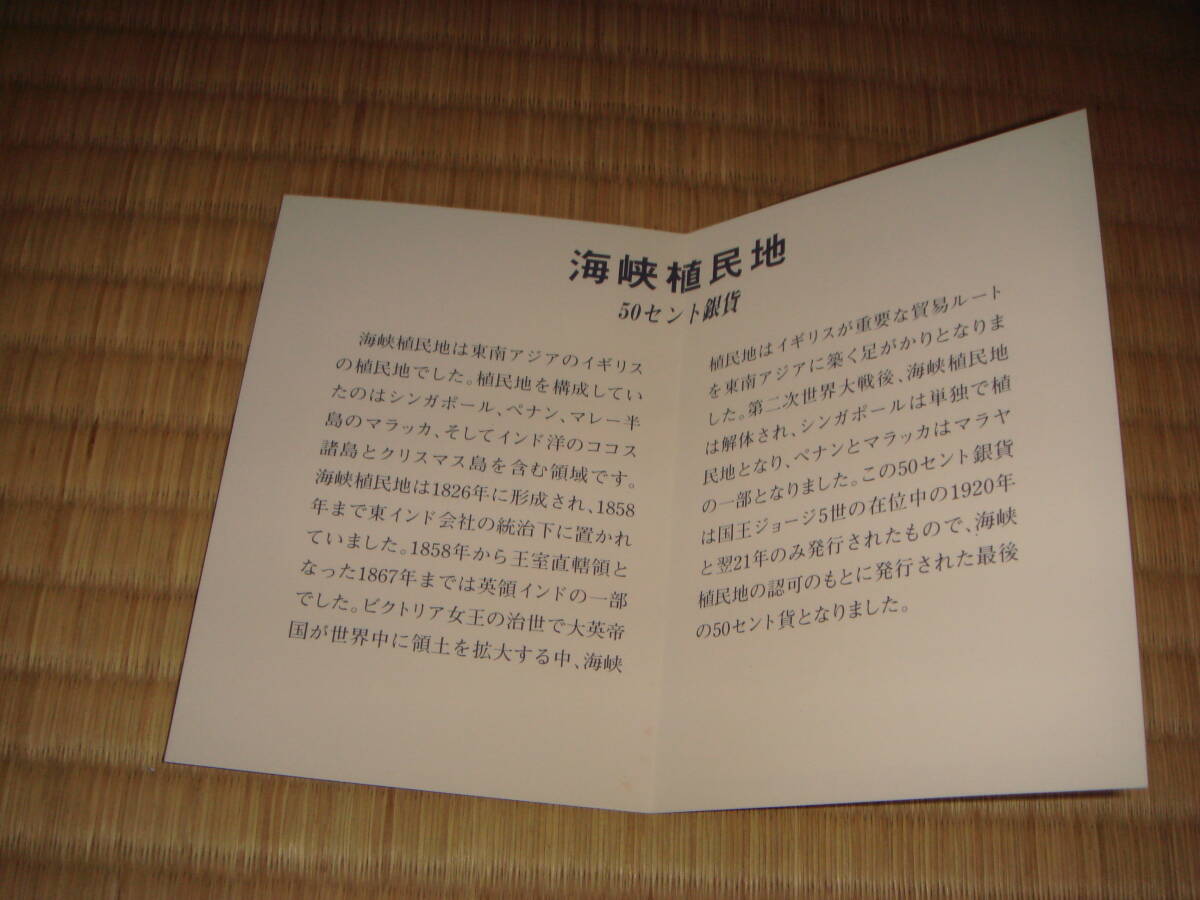 海峡植民地
50セント銀貨
海峡植民地は東南アジアのイギリス
の植民地でした。植民地を構成してい
たのはシンガポール、ペナン、マレー半
島のマラッカ、そしてインド洋のココス
諸島とクリスマス島を含む領域です。
海峡植民地は1826年に形成され、1858
年まで東インド会社の統治下に置かれ
ていました。1858年から王室直轄領と
なった1867年までは英領インドの一部
でした。ビクトリア女王の治世で大英帝
国が世界中に領土を拡大する中、海峡
植民地はイギリスが重要な貿易ルート
を東南アジアに築く足がかりとなりま
した。第二次世界大戦後、海峡植民地
は解体され、シンガポールは単独で植
民地となり、ペナンとマラッカはマラヤ
の一部となりました。この50セント銀貨
は国王ジョージ5世の在位中の1920年
と翌21年のみ発行されたもので、海峡
植民地の認可のもとに発行された最後
の50セント貨となりました。